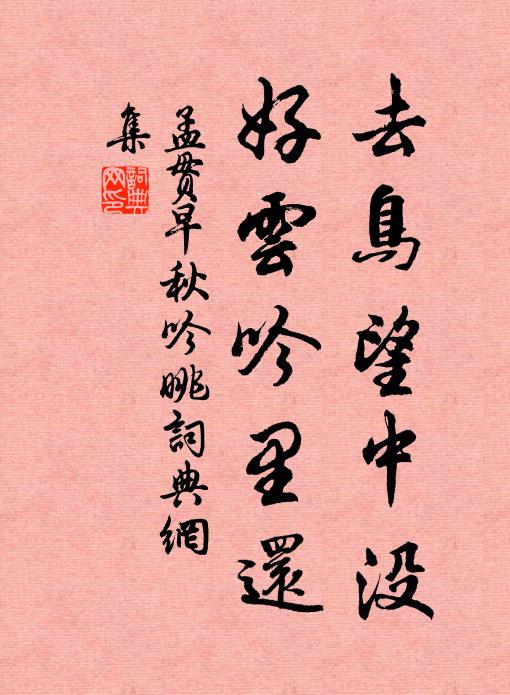 去鳥望中没
好雲吟里還
孟貫早秋吟眺詞典網
集
詞典
网印